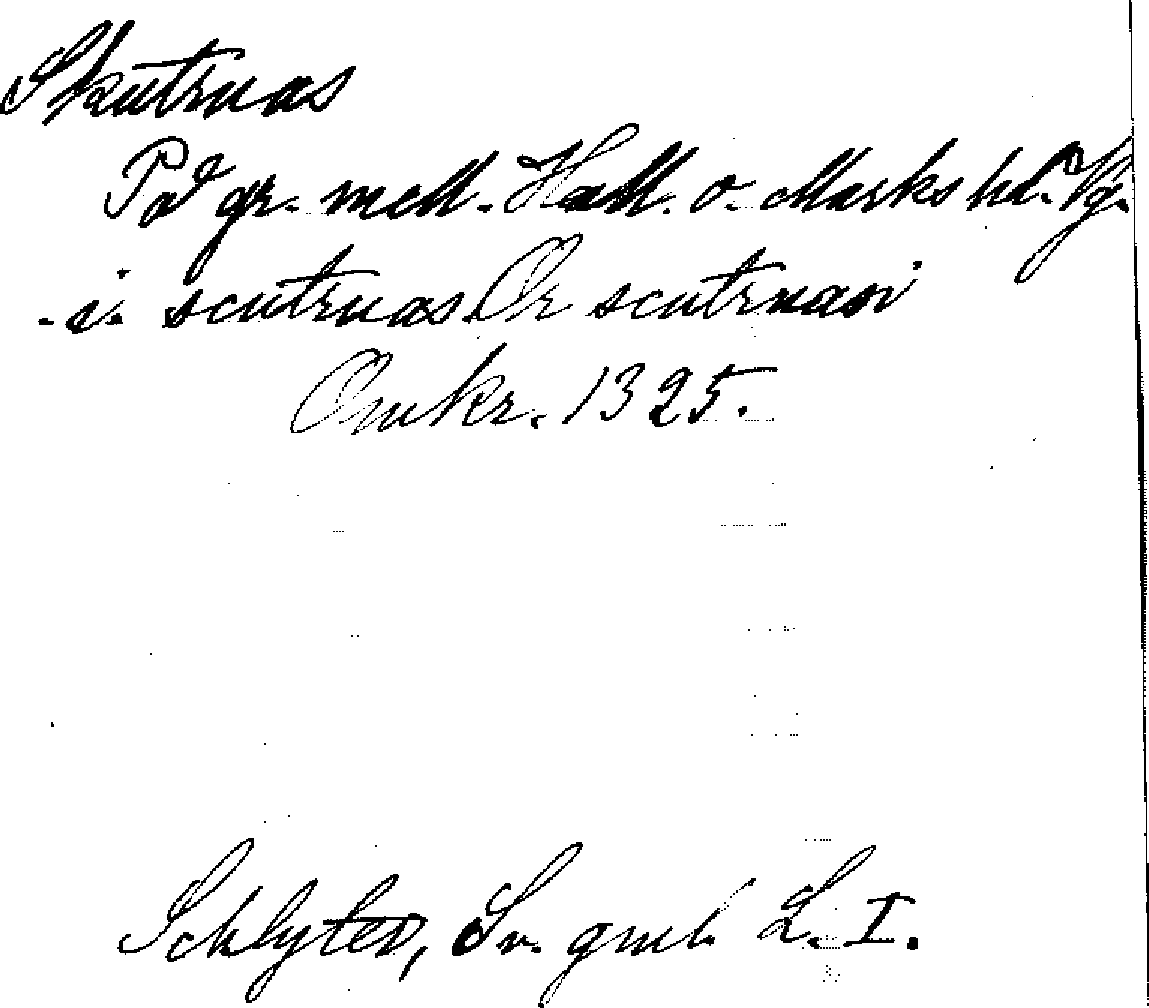 Skutruas
På gr. mell. Hall. o. Marks hd. Vg.
i. scutruas Or scutruasi
Omkr. 1325.
Schlyter, Sv. gml. L. I.